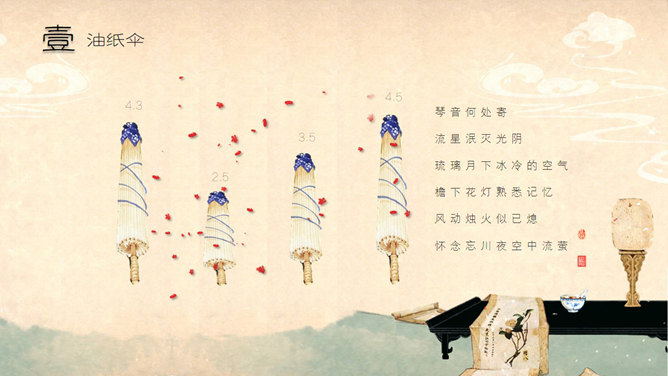 壹 油纸伞
4.3
2.5
3.5
4.5
琴音何处寄
流星泯灭光阴
琉璃月下冰冷的空气
檐下花灯熟悉记忆
风动烛火似已熄
怀念忘川夜空中流萤